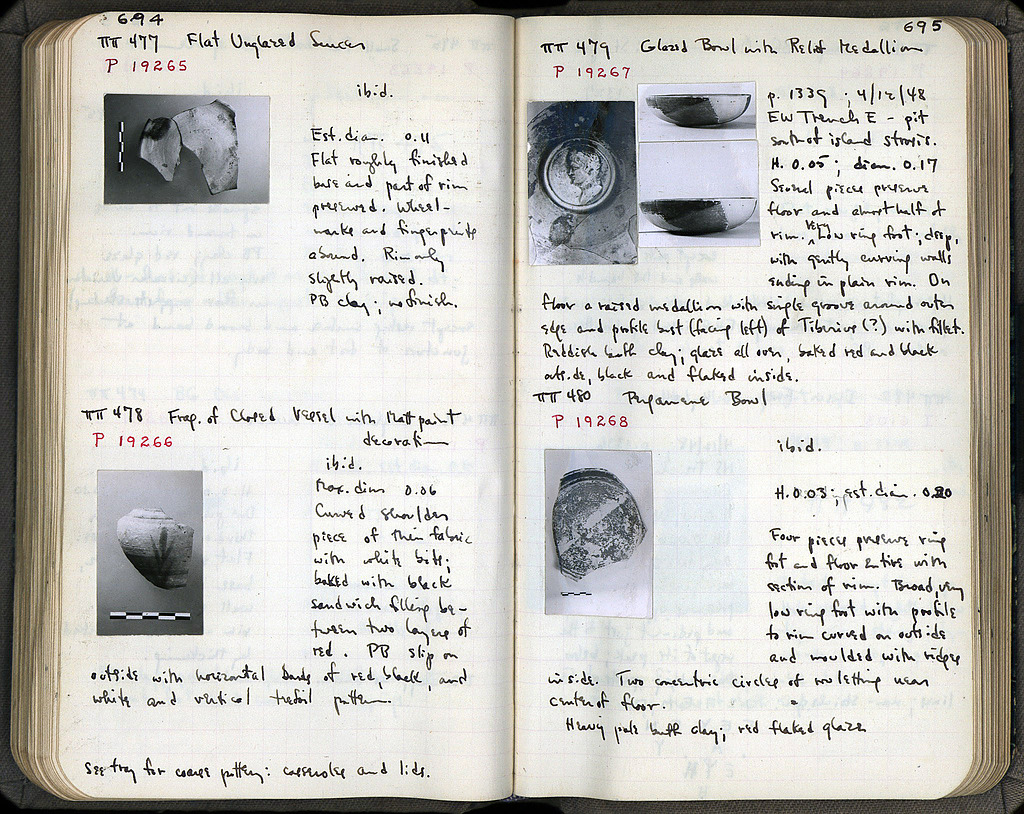 694
ΠΠ 477 Flat Unglazed Saucer
P 19265
ibid.
Est. diam. 0.11
Flat roughly finished
base and part of rim
preserved. Wheel-
marks and fingerprints
abound. Rim only
slightly raised.
PB clay; no finish.
ΠΠ 478 Frag. of Closed Vessel with Matt paint
decoration
P 19266
ibid.
Max. dim 0.06
Curved shoulder
piece of thin fabric
with white bits;
baked with black
sandwich filling be-
tween two layers of
red. PB slip on
outside with horizontal bands of red, black, and
white and vertical trefoil pattern.
See tray for coarse pottery: casseroles and lids.
695
ΠΠ 479 Glazed Bowl with Relief Medallion
P 19267
p. 1339 ; 4/12/48
EW Trench E - pit
south of island strosis.
H. 0.05; diam. 0.17
Several pieces preserve
floor and almost half of
rim. Very low ring foot; deep,
with gently curving walls
ending in plain rim. On
floor a raised medallion with single groove around outer
edge and profile bust (facing left) of Tiberius (?) with fillet.
Reddish buff clay; glaze all over, baked red and black
outside, black and flaked inside.
ΠΠ 480 Pergamene Bowl
P 19268
ibid.
H. 0.03; est. diam. 0.20
Four pieces preserve ring
foot and floor entire with
section of rim. Broad, very
low ring foot with profile
to rim curved on outside
and moulded with ridges
inside. Two concentric circles of rouletting near
center of floor.
Heavy pale buff clay; red flaked glaze